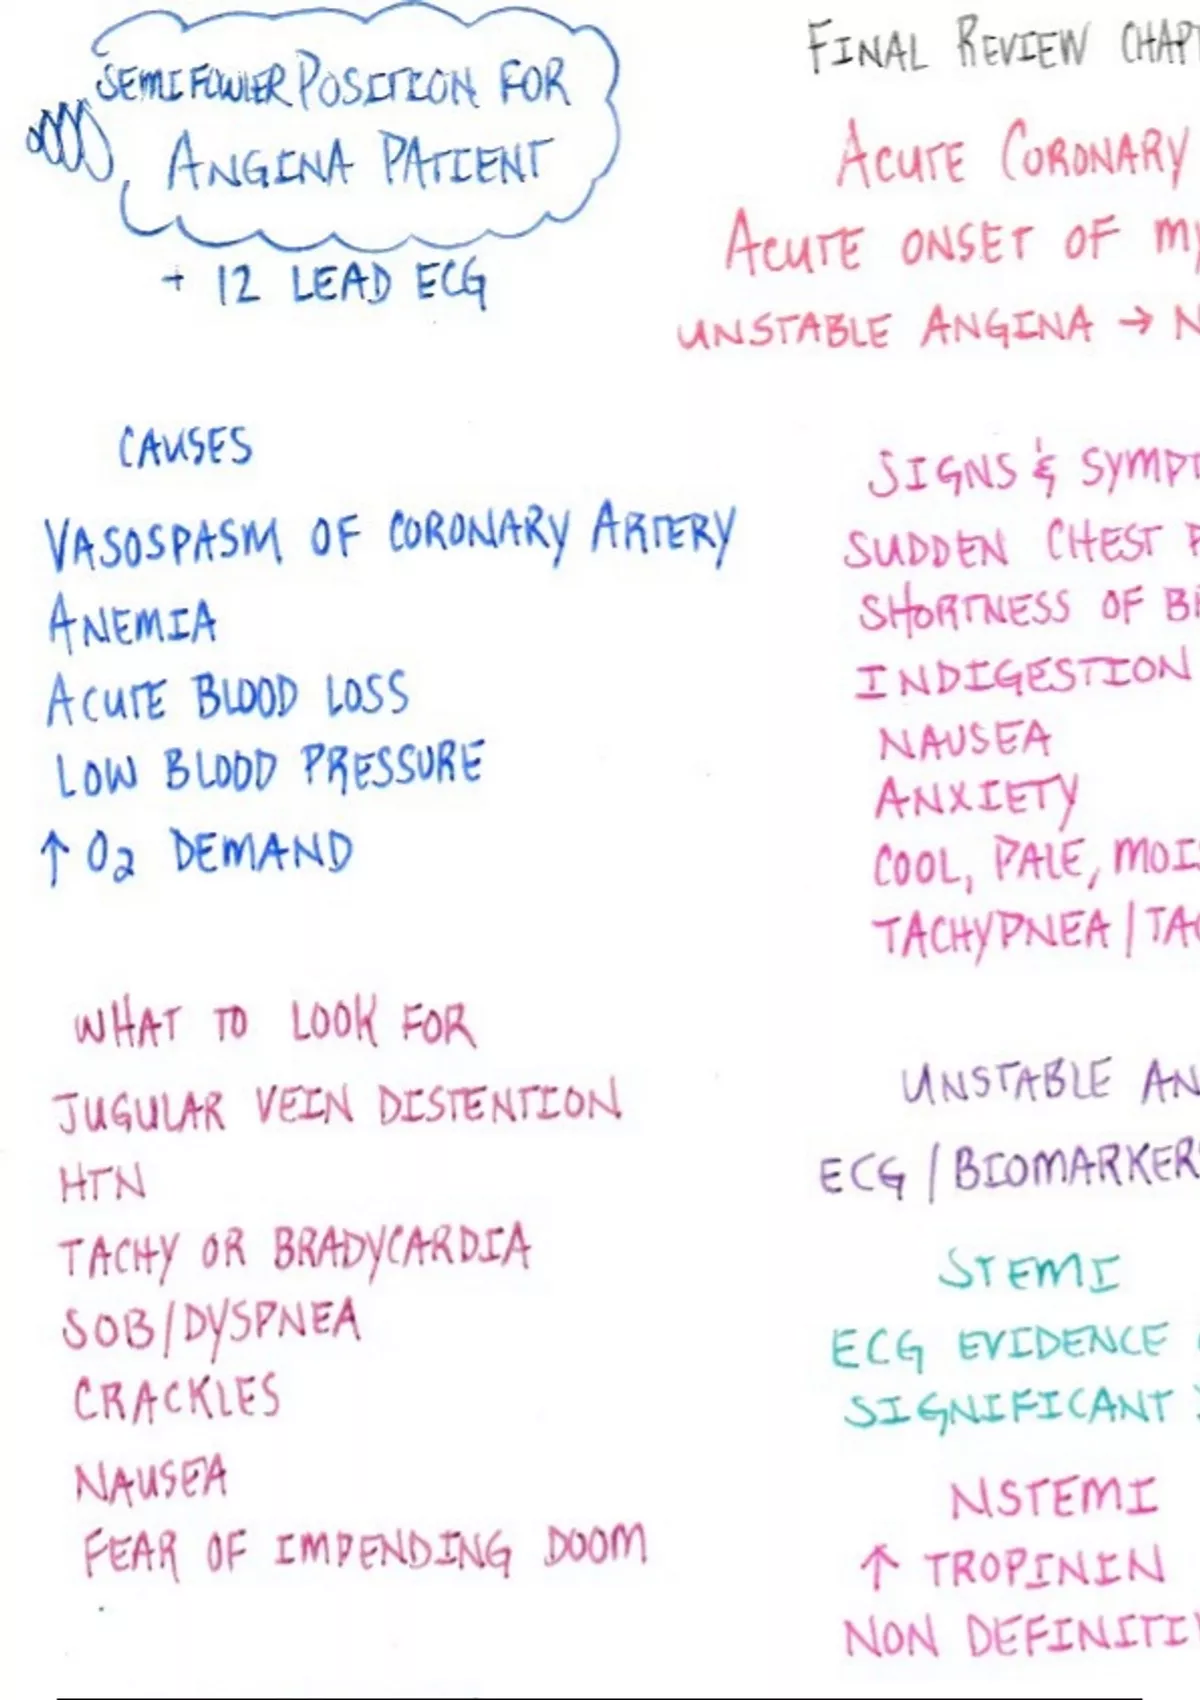 SEMI FOWLER POSITION FOR
ANGINA PATIENT
+ 12 LEAD ECG
CAUSES
VASOSPASM OF CORONARY ARTERY
ANEMIA
ACUTE BLOOD LOSS
LOW BLOOD PRESSURE
↑ O2 DEMAND
WHAT TO LOOK FOR
JUGULAR VEIN DISTENTION
HTN
TACHY OR BRADYCARDIA
SOB/DYSPNEA
CRACKLES
NAUSEA
FEAR OF IMPENDING DOOM
FINAL REVIEW CHAPT
ACUTE CORONARY
ACUTE ONSET OF MY
UNSTABLE ANGINA → N
SIGNS & SYMPT
SUDDEN CHEST P
SHORTNESS OF BR
INDIGESTION
NAUSEA
ANXIETY
COOL, PALE, MOIS
TACHYPNEA/TAC
UNSTABLE AN
ECG/BIOMARKERS
STEMI
ECG EVIDENCE
SIGNIFICANT
NSTEMI
↑ TROPININ
NON DEFINITIV